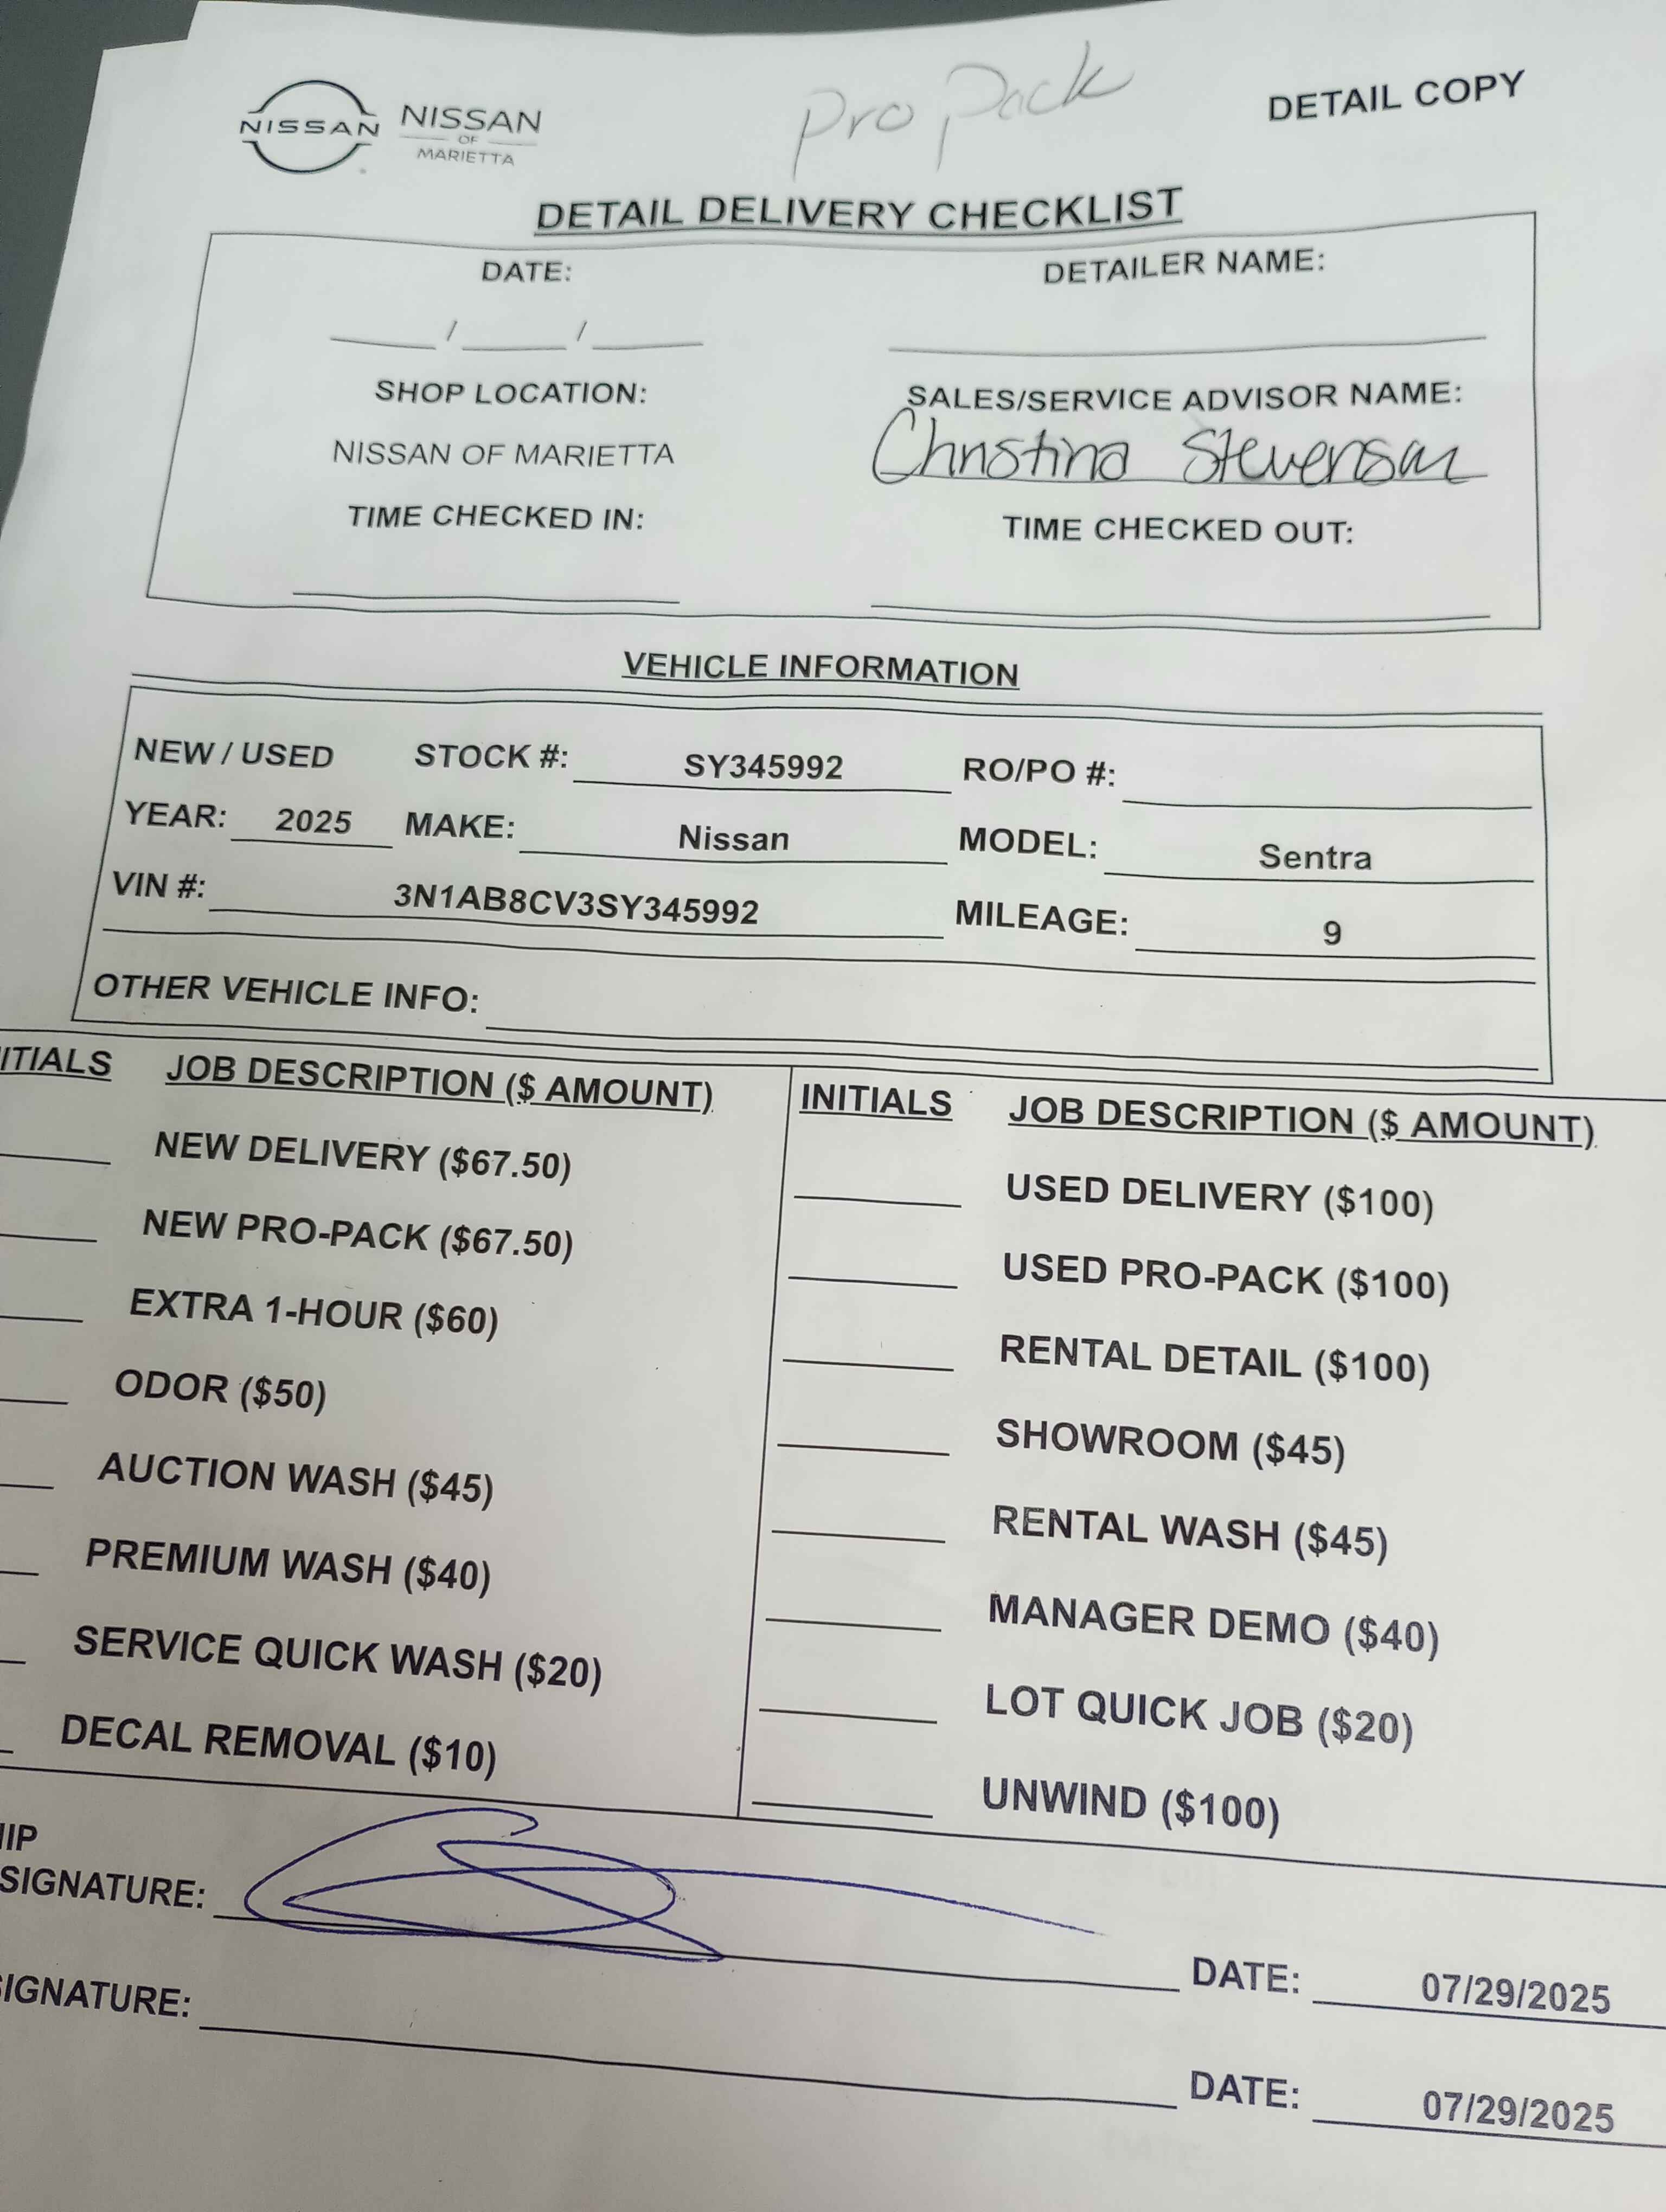 Pro Pack
DETAIL COPY
NISSAN
NISSAN
OF
MARIETTA
DETAIL DELIVERY CHECKLIST
DATE: DETAILER NAME:
____/____/____
SHOP LOCATION: SALES/SERVICE ADVISOR NAME:
NISSAN OF MARIETTA Christina Stevenson
TIME CHECKED IN: TIME CHECKED OUT:
VEHICLE INFORMATION
NEW / USED STOCK #: SY345992 RO/PO #:
YEAR: 2025 MAKE: Nissan MODEL: Sentra
VIN #: 3N1AB8CV3SY345992 MILEAGE: 9
OTHER VEHICLE INFO:
ITIALS JOB DESCRIPTION ($ AMOUNT) INITIALS JOB DESCRIPTION ($ AMOUNT)
NEW DELIVERY ($67.50) USED DELIVERY ($100)
NEW PRO-PACK ($67.50) USED PRO-PACK ($100)
EXTRA 1-HOUR ($60) RENTAL DETAIL ($100)
ODOR ($50) SHOWROOM ($45)
AUCTION WASH ($45) RENTAL WASH ($45)
PREMIUM WASH ($40) MANAGER DEMO ($40)
SERVICE QUICK WASH ($20) LOT QUICK JOB ($20)
DECAL REMOVAL ($10) UNWIND ($100)
HIP
SIGNATURE: DATE: 07/29/2025
SIGNATURE: DATE: 07/29/2025